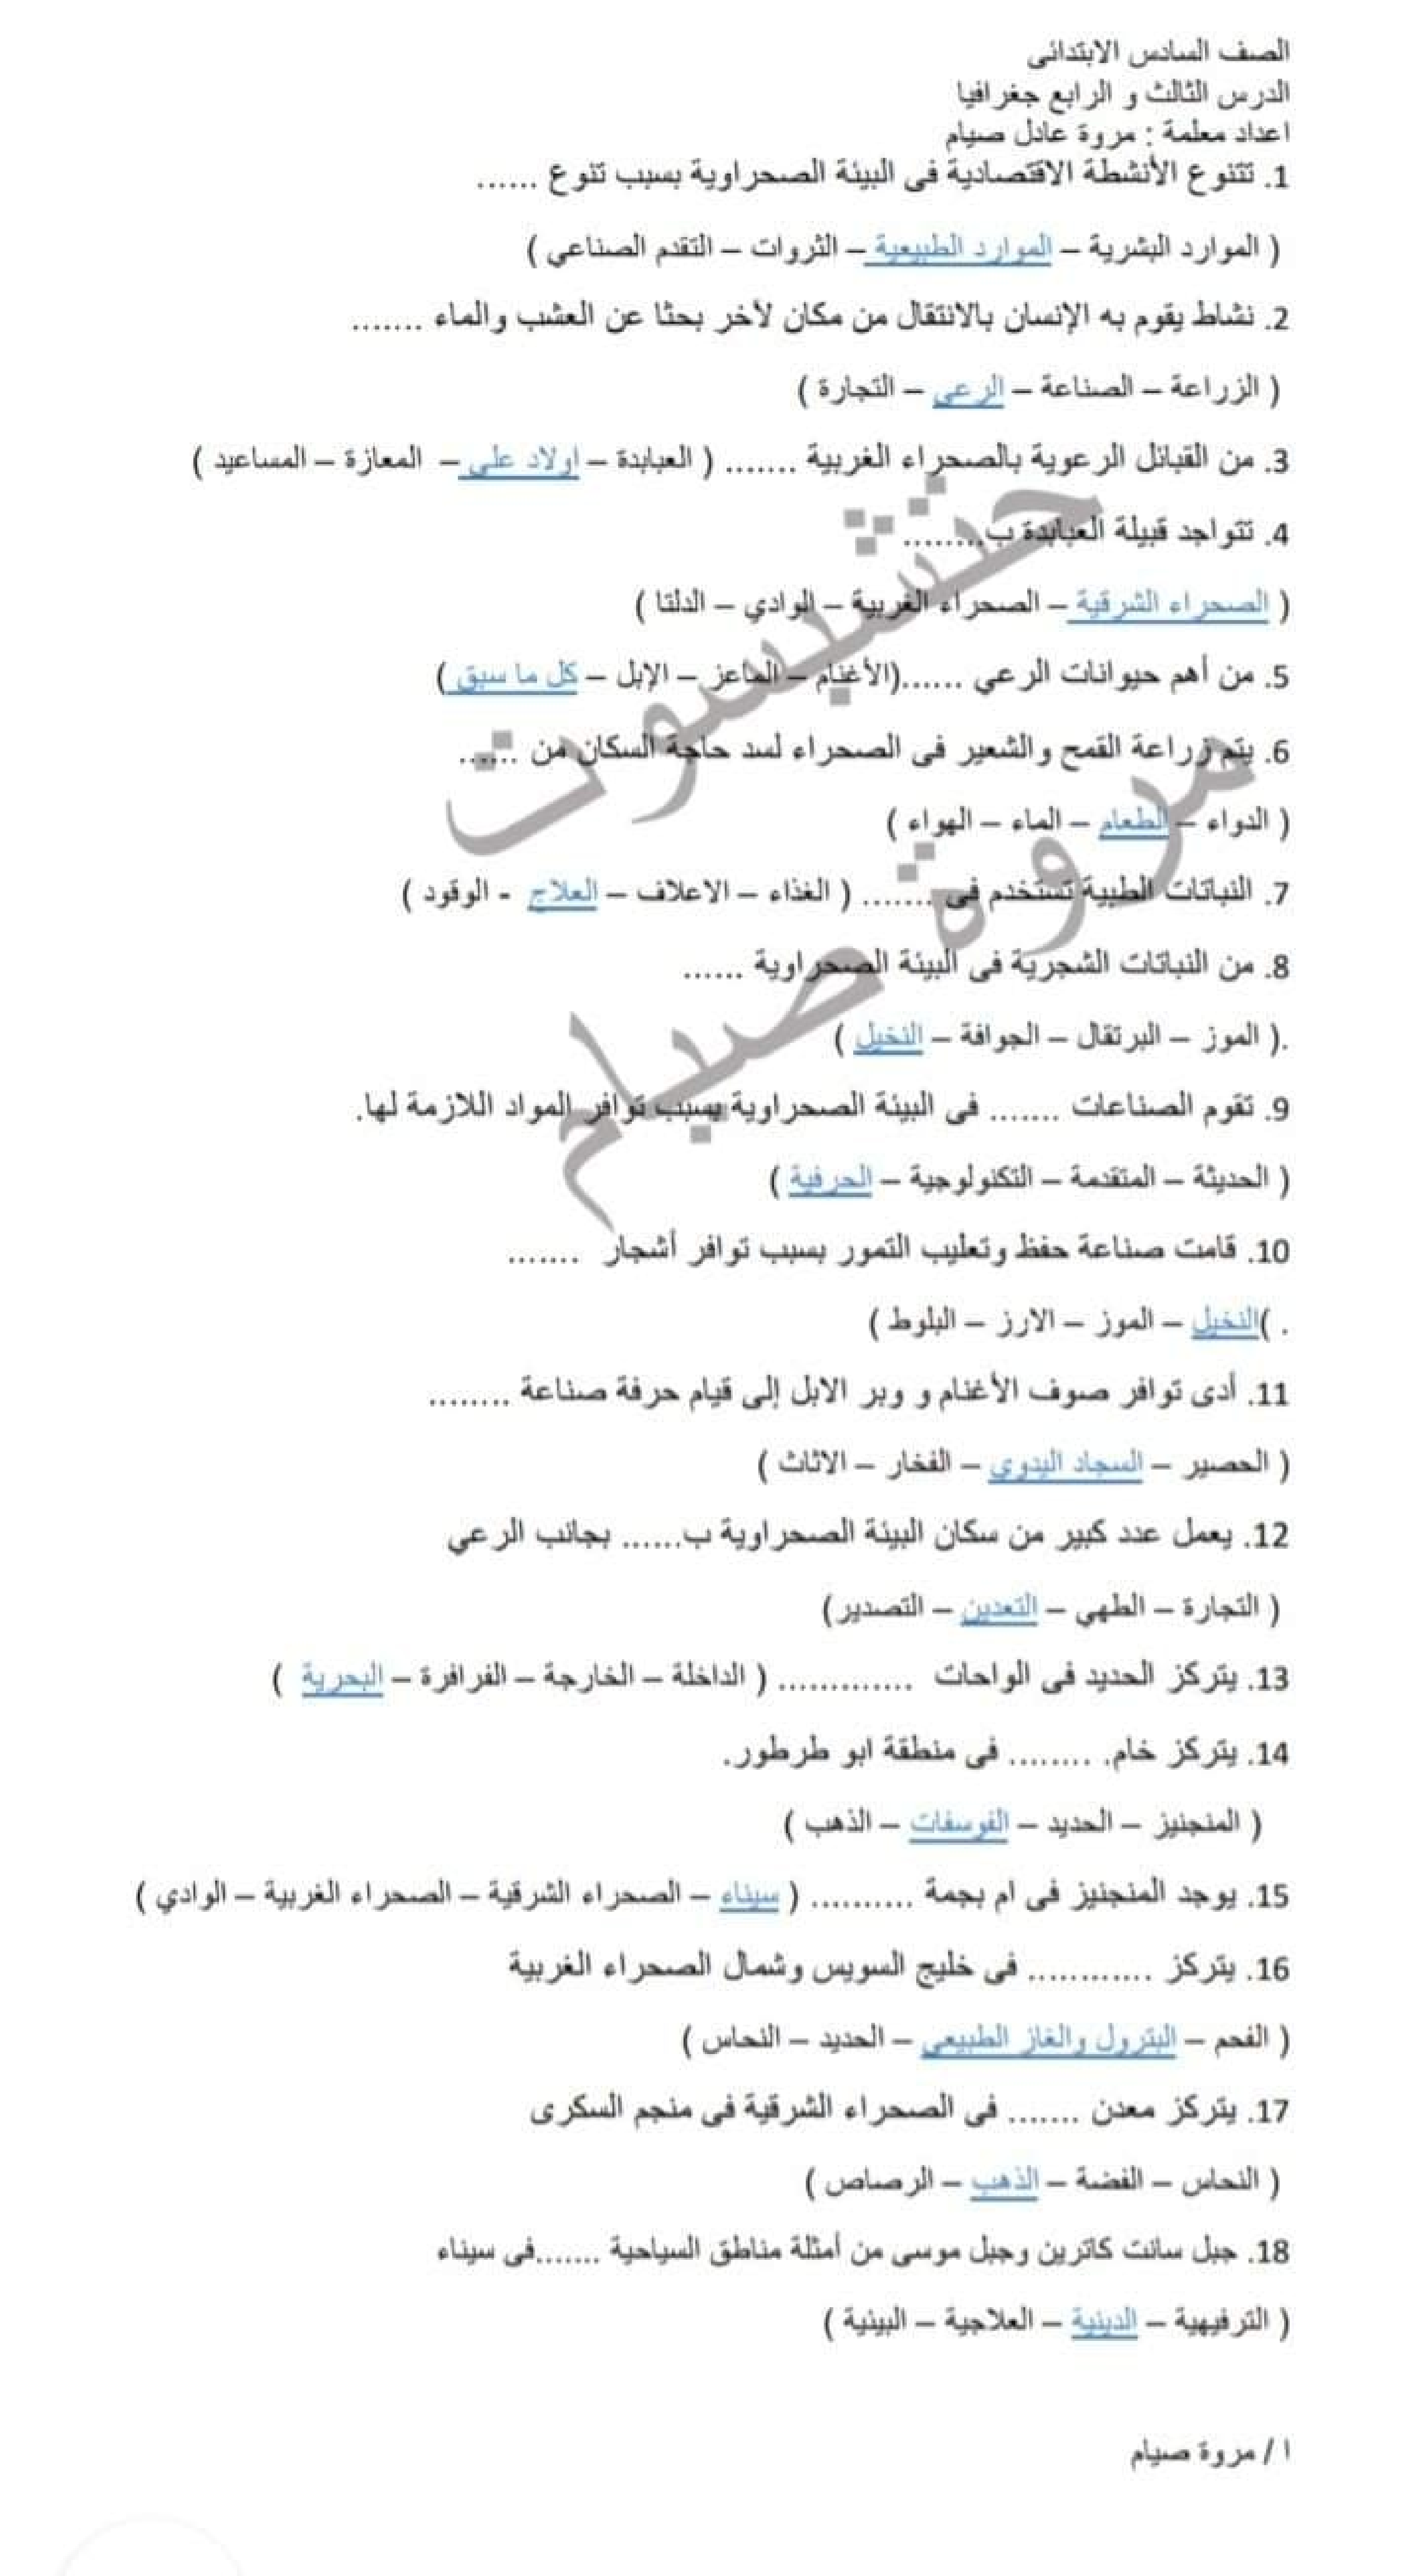 الصف السادس الابتدائى
الدرس الثالث و الرابع جغرافيا
اعداد معلمة : مروة عادل صيام
1. تتنوع الأنشطة الاقتصادية فى البيئة الصحراوية بسبب تنوع ......
( الموارد البشرية – الموارد الطبيعية – الثروات – التقدم الصناعي )
2. نشاط يقوم به الإنسان بالانتقال من مكان لأخر بحثا عن العشب والماء .......
( الزراعة – الصناعة – الرعي – التجارة )
3. من القبائل الرعوية بالصحراء الغربية ....... ( العبابدة – اولاد على – المعازة – المساعيد )
4. تتواجد قبيلة العبابدة ب........
( الصحراء الشرقية – الصحراء الغربية – الوادي – الدلتا )
5. من أهم حيوانات الرعي ......(الأغنام – الماعز – الإبل – كل ما سبق )
6. يتم زراعة القمح والشعير فى الصحراء لسد حاجة السكان من ......
( الدواء – الطعام – الماء – الهواء )
7. النباتات الطبية تستخدم فى ....... ( الغذاء – الاعلاف – العلاج - الوقود )
8. من النباتات الشجرية فى البيئة الصحراوية ......
.( الموز – البرتقال – الجوافة – النخيل )
9. تقوم الصناعات ....... فى البيئة الصحراوية بسبب توافر المواد اللازمة لها.
( الحديثة – المتقدمة – التكنولوجية – الحرفية )
10. قامت صناعة حفظ وتعليب التمور بسبب توافر أشجار .......
. )النخيل – الموز – الارز – البلوط )
11. أدى توافر صوف الأغنام و وبر الابل إلى قيام حرفة صناعة ........
( الحصير – السجاد اليدوي – الفخار – الاثاث )
12. يعمل عدد كبير من سكان البيئة الصحراوية ب...... بجانب الرعي
( التجارة – الطهي – التعدين – التصدير)
13. يتركز الحديد فى الواحات ............. ( الداخلة – الخارجة – الفرافرة – البحرية )
14. يتركز خام. ........ فى منطقة ابو طرطور.
( المنجنيز – الحديد – الفوسفات – الذهب )
15. يوجد المنجنيز فى ام بجمة .......... ( سيناء – الصحراء الشرقية – الصحراء الغربية – الوادي )
16. يتركز ............ فى خليج السويس وشمال الصحراء الغربية
( الفحم – البترول والغاز الطبيعي – الحديد – النحاس )
17. يتركز معدن ....... فى الصحراء الشرقية فى منجم السكرى
( النحاس – الفضة – الذهب – الرصاص )
18. جبل سانت كاترين وجبل موسى من أمثلة مناطق السياحية .......فى سيناء
( الترفيهية – الدينية – العلاجية – البيئية )
ا / مروة صيام
حتشبسوت
مروة صيام